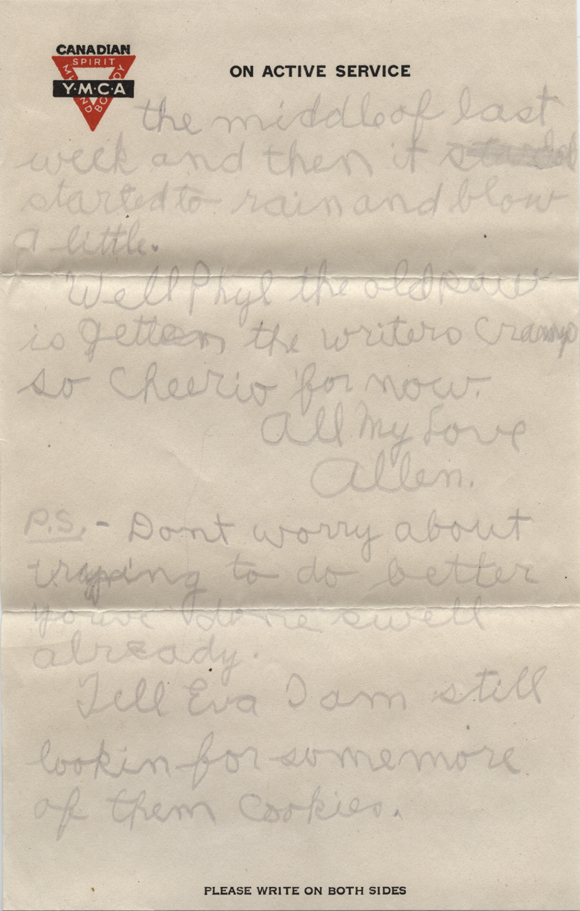 CANADIAN
SPIRIT
MIND
BODY
Y·M·C·A
ON ACTIVE SERVICE
the middle of last
week and then it
started to rain and blow
a little.
Well Phyl the old paw
is getten the writers cramp
so Cheerio for now.
All My Love
Allen.
P.S. - Dont worry about
trying to do better
youve done swell
already.
Tell Eva I am still
lookin for somemore
of them cookies.
PLEASE WRITE ON BOTH SIDES